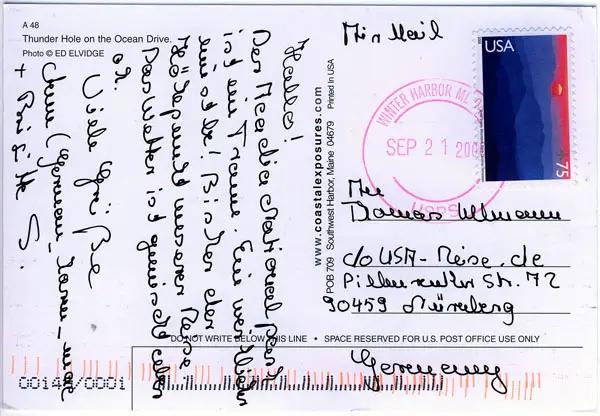 A 48
Thunder Hole on the Ocean Drive.
Photo © ED ELVIDGE
Hallo!
Der Acadia National Park
ist ein Traum. Ein wirklicher
Höhepunkt unserer Reise.
Das Wetter ist gemischt aber
ok.
Viele Grüße
+ Brigitte S.
www.coastalexposures.com
POB 709 Southwest Harbor, Maine 04679 Printed in USA
Air Mail
USA
75
WINTER HARBOR ME
SEP 21
USPS
An
Thomas Ullmann
c/o USA-Reise.de
Str. 72
90459 Nürnberg
Germany
DO NOT WRITE BELOW THIS LINE • SPACE RESERVED FOR U.S. POST OFFICE USE ONLY